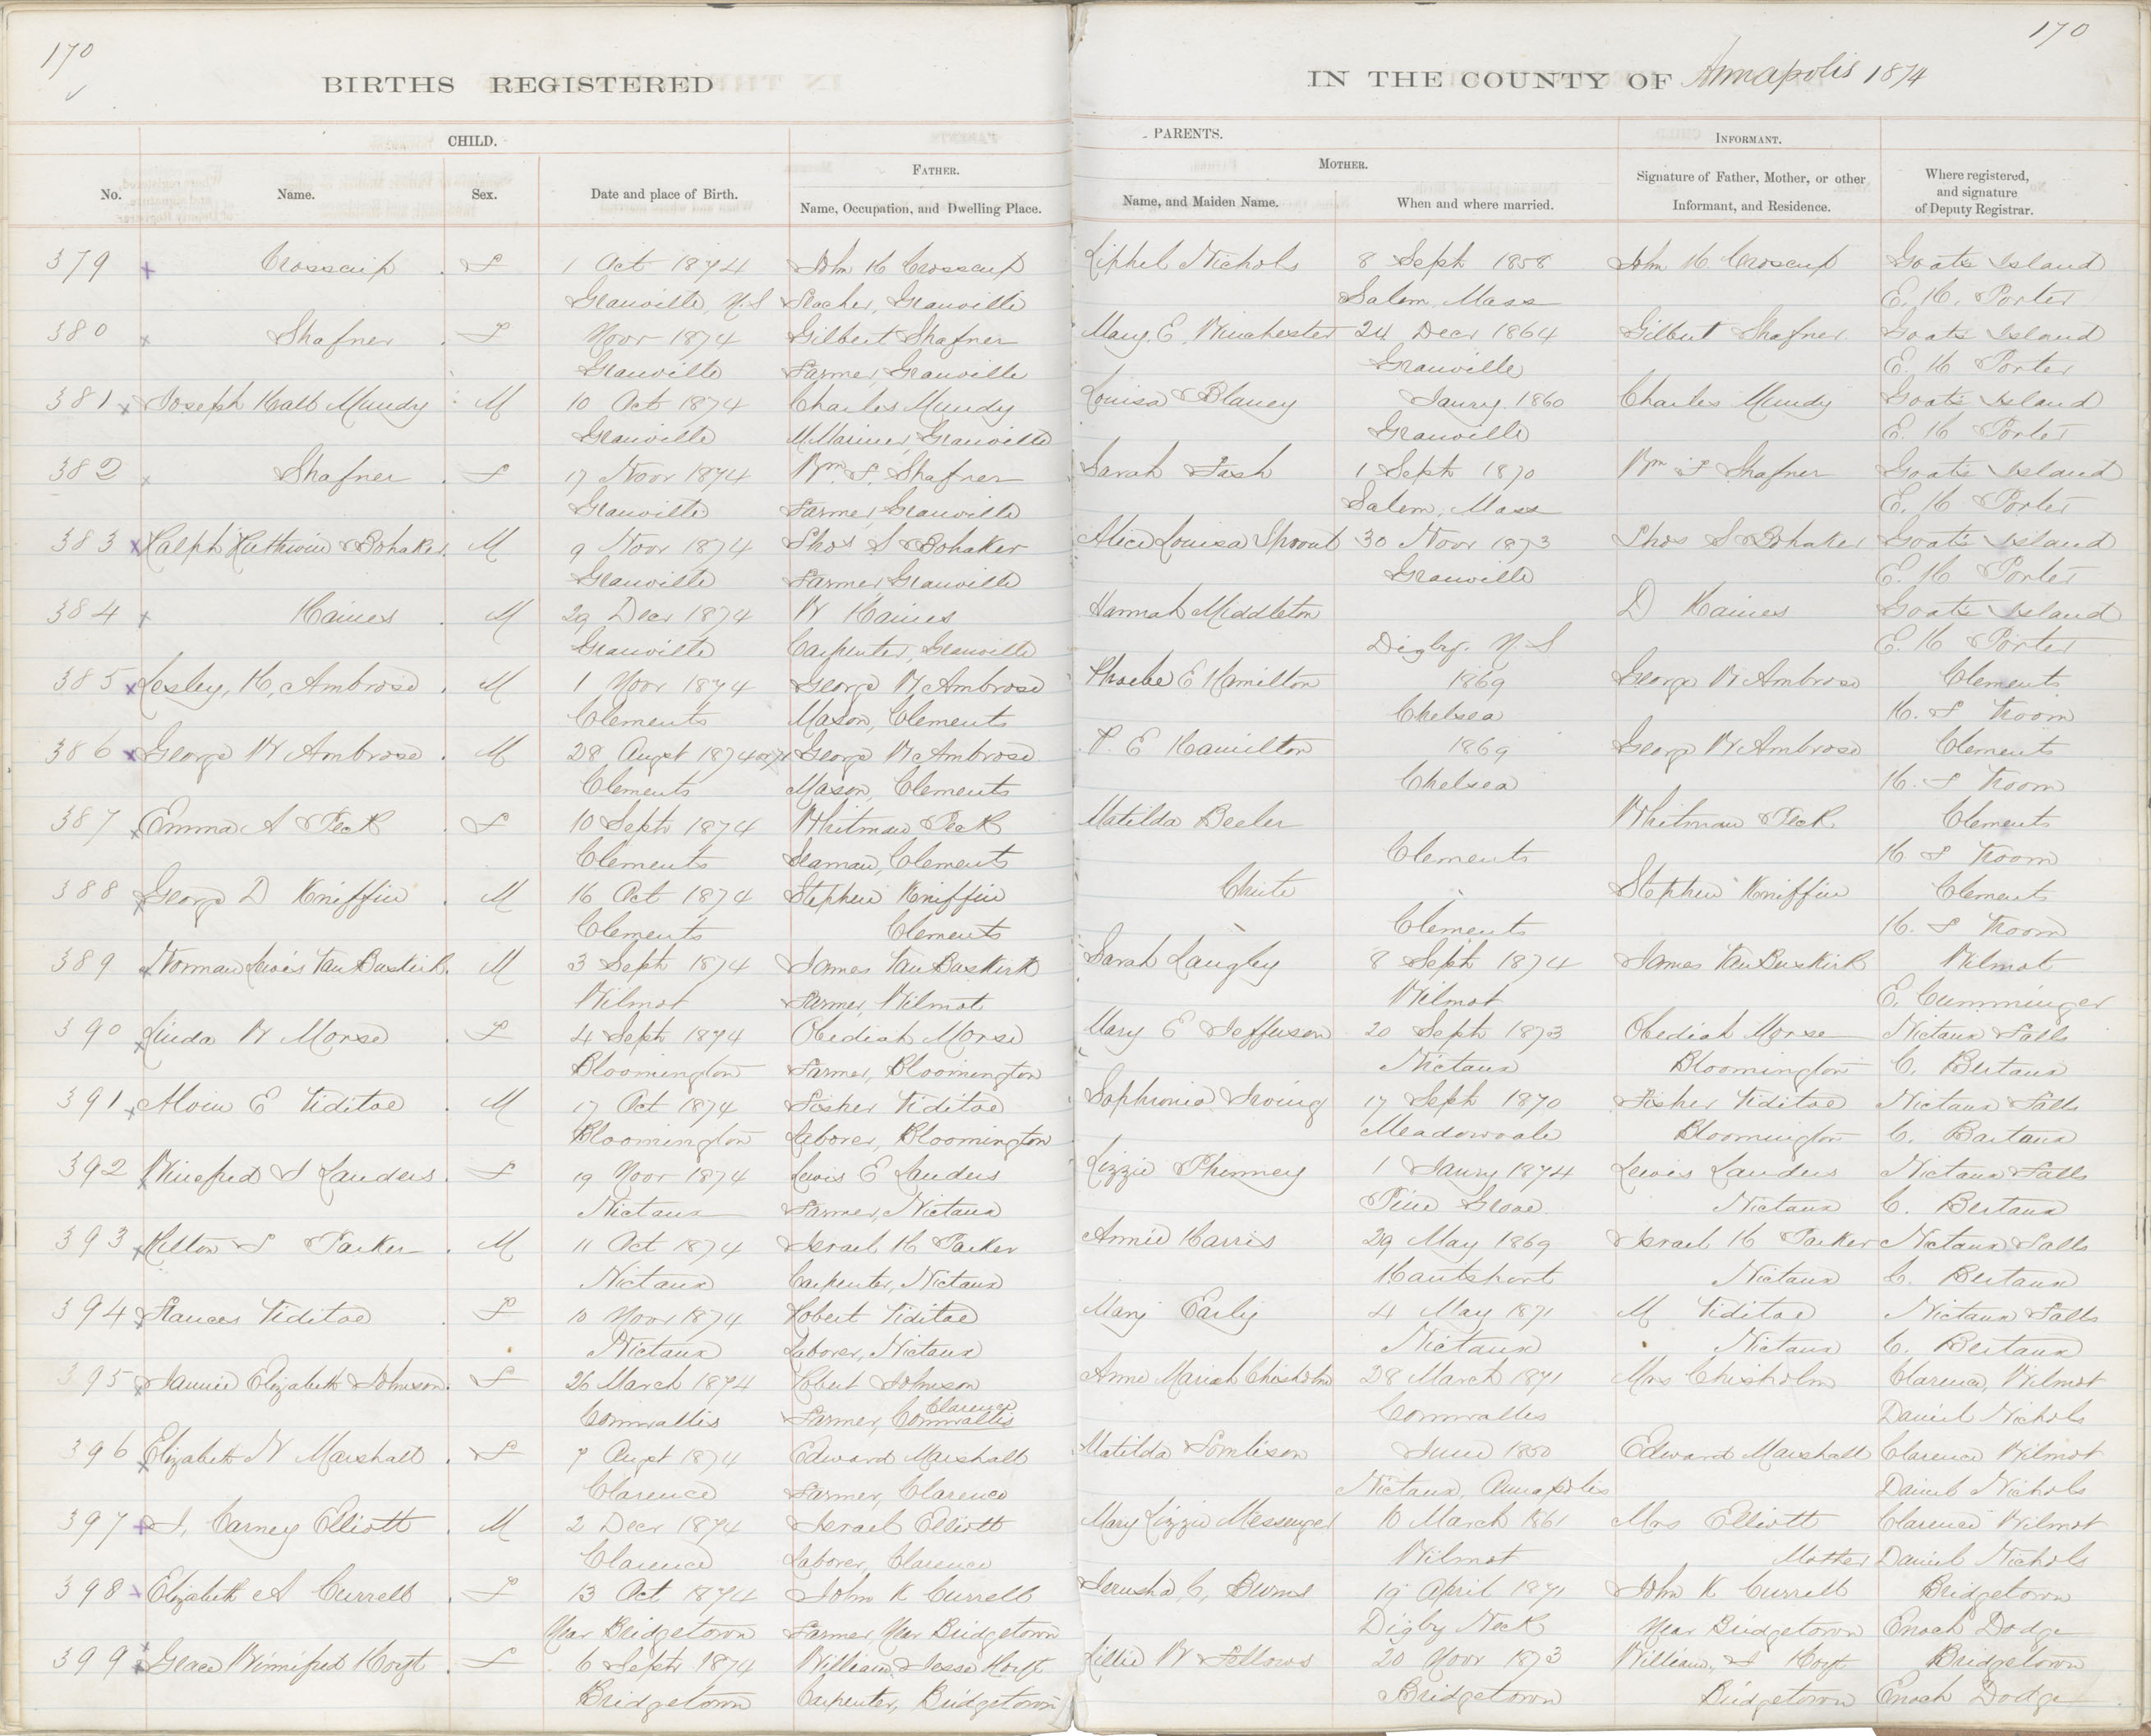 170
170
BIRTHS REGISTERED IN THE COUNTY OF Annapolis 1874
CHILD. PARENTS. INFORMANT.
FATHER. MOTHER.
No. Name. Sex. Date and place of Birth. Name, Occupation, and Dwelling Place. Name, and Maiden Name. When and where married. Signature of Father, Mother, or other Informant, and Residence. Where registered, and signature of Deputy Registrar.
379 Crosscup F 1 Oct 1874 John H Crosscup Nichols 8 Sept 1858 John H. Croscup Goats Island
Granville, N.S Granville Salem Mass E. H. Porter
380 Shafner F Novr 1874 Gilbert Shafner Mary E. Winchester 24 Decr 1864 Gilbert Shafner Goats Island
Granville Farmer, Granville Granville E. H Porter
381 Joseph Hall Mundy M 10 Oct 1874 Charles Mundy Louisa Blaney Janry 1860 Charles Mundy Goats Island
Granville M. Mariner, Granville Granville E. H Porter
382 Shafner F 17 Novr 1874 Wm. F. Shafner Sarah 1 Sept 1870 Wm F Shafner Goats Island
Granville Farmer, Granville Salem, Mass E. H Porter
383 Ralph Bohaker M 9 Novr 1874 Thos S Bohaker Alice Louisa Sprout 30 Novr 1873 Thos S Bohaker Goats Island
Granville Farmer, Granville Granville E. H Porter
384 Haines M 29 Decr 1874 W Haines Hannah Middleton D Haines Goats Island
Granville Carpenter, Granville Digby. N.S E. H Porter
385 Lesley, H, Ambrose M 1 Novr 1874 George W Ambrose Phoebe E Hamilton 1869 George W Ambrose Clements
Clements Mason, Clements Chelsea H. S Vroom
386 George W Ambrose M 28 Augst 1874 George W Ambrose P. E Hamilton 1869 George W Ambrose Clements
Clements Mason, Clements Chelsea H. S Vroom
387 Emma A Peck F 10 Sept 1874 Whitman Peck Matilda Beeler Whitman Peck Clements
Clements Seaman, Clements Clements H. S Vroom
388 George D Kniffin M 16 Oct 1874 Stephen Kniffin Chute Stephen Kniffin Clements
Clements Clements Clements H. S Vroom
389 Norman Lewis Van Buskirk M 3 Sept 1874 James Van Buskirk Sarah Langley 8 Sept 1874 James Van Buskirk Wilmot
Wilmot Farmer, Wilmot Wilmot E. Cumminger
390 Linda W Morse F 4 Sept 1874 Obediah Morse Mary E Jefferson 20 Sept 1873 Obediah Morse Nictaux Falls
Bloomington Farmer, Bloomington Nictaux Bloomington C. Bertaux
391 Alvin E Viditoe M 17 Oct 1874 Fisher Viditoe Sophronia Irving 17 Sept 1870 Fisher Viditoe Nictaux Falls
Bloomington Laborer, Bloomington Meadowvale Bloomington C. Bertaux
392 Winefred S Landers F 19 Novr 1874 Lewis E Landers Lizzie Phinney 1 Janry 1874 Lewis Landers Nictaux Falls
Nictaux Farmer, Nictaux Pine Grove Nictaux C. Bertaux
393 Hilton S Parker M 11 Oct 1874 Israel H Parker Annie Harris 29 May 1869 Israel H Parker Nictaux Falls
Nictaux Carpenter, Nictaux Hantsport Nictaux C. Bertaux
394 Frances Viditoe F 10 Novr 1874 Robert Viditoe Mary Early 4 May 1871 M Viditoe Nictaux Falls
Nictaux Laborer, Nictaux Nictaux Nictaux C. Bertaux
395 Jannie Elizabeth Johnson F 26 March 1874 Robert Johnson Anne Mariah Chisholm 28 March 1871 Mrs Chisholm Clarence, Wilmot
Clarence
Cornwallis Farmer, Cornwallis Cornwallis Daniel Nichols
396 Elizabeth N Marshall F 7 Augst 1874 Edward Marshall Matilda Tomlison June 1850 Edward Marshall Clarence Wilmot
Clarence Farmer, Clarence Nictaux, Annapolis Daniel Nichols
397 I, Carney Elliott M 2 Decr 1874 Israel Elliott Mary Lizzie Messenger 10 March 1861 Mrs Elliott Clarence Wilmot
Clarence Laborer, Clarence Wilmot Mother Daniel Nichols
398 Elizabeth A Currell F 13 Oct 1874 John K Currell Jerusha, C, Burns 19 April 1871 John K Currell Bridgetown
Near Bridgetown Farmer, Near Bridgetown Digby Neck Near Bridgetown Enoch Dodge
399 Grace Winnifred Hoyt F 6 Septr 1874 William Jesse Hoyt Lillie W Fellows 20 Novr 1873 William, J Hoyt Bridgetown
Bridgetown Carpenter, Bridgetown Bridgetown Bridgetown Enoch Dodge